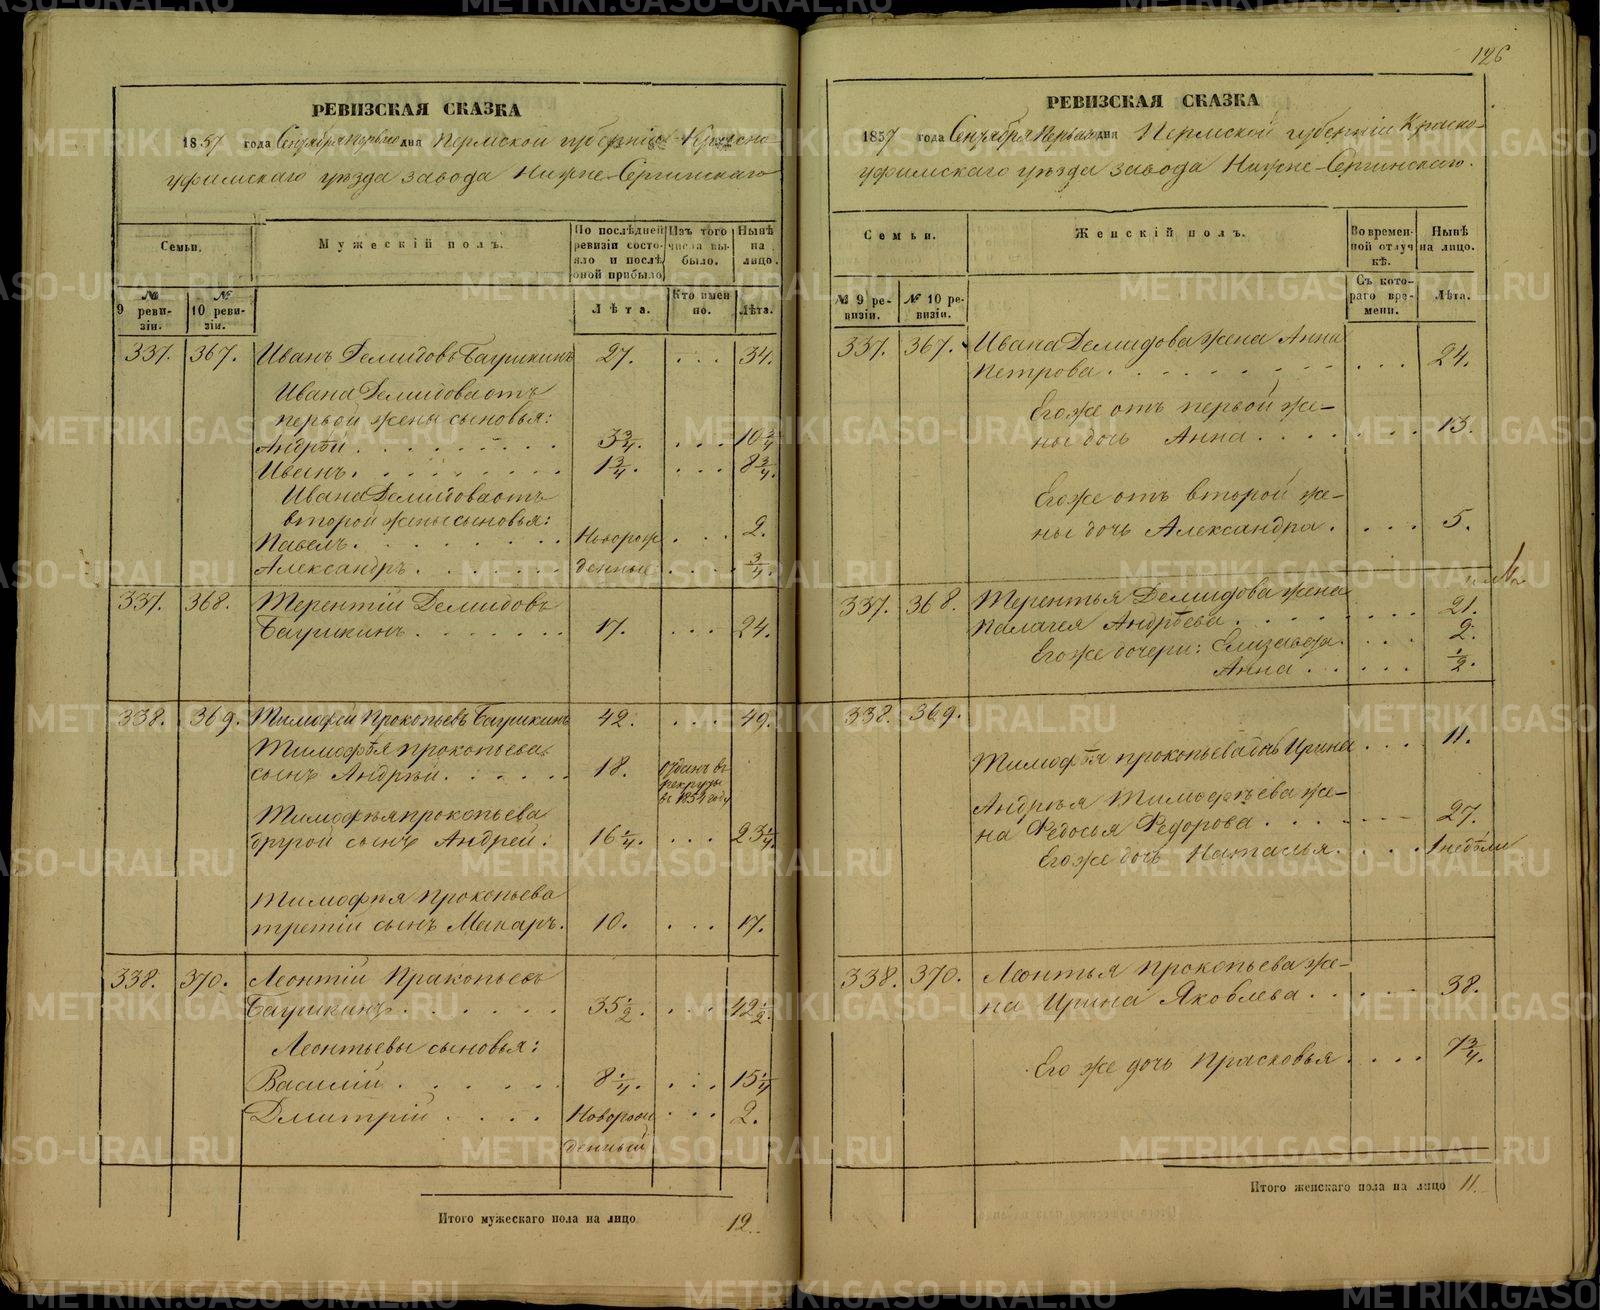 126
РЕВИЗСКАЯ СКАЗКА
1857 года Сентября первого дня Пермской губернiи Красно-
уфимскаго уѣзда завода Нижне-Сергинскаго
Семьи.
Мужескiй полъ.
По послѣдней ревизiи состояло и послѣ оной прибыло
Изъ того числа выбыло.
Нынѣ на лицо.
№ 9 ревизiи.
№ 10 ревизiи.
Лѣта.
Кто именно.
Лѣта.
337. 367. Иванъ Демидовъ Багрикинъ 27. . . . 34.
Ивана Демидова отъ
первой жены сыновья:
Андрѣй 3 3/4. . . . 10 3/4
Иванъ 1 3/4. . . . 8 3/4.
Ивана Демидова отъ
второй жены сыновья:
Павелъ Новорож . . . 2.
Александръ денные . . . 3/4.
337. 368. Терентiй Демидовъ
Багрикинъ 17. . . . 24.
338. 369. Тимофей Прокопьевъ Багрикинъ 42. . . . 49.
Тимофѣя Прокопьева
сынъ Андрѣй 18. отданъ въ рекруты въ 1854 году
Тимофѣя Прокопьева
другой сынъ Андрей: 16 1/4. . . . 23 1/4.
Тимофѣя Прокопьева
третiй сынъ Макаръ. 10. . . . 17.
338. 370. Леонтiй Пракопьевъ
Багрикинъ 35 1/2. . . . 42 1/2.
Леонтьевы сыновья:
Василiй 8 1/4. . . . 15 1/4
Дмитрiй Новорож . . . 2.
денный
Итого мужескаго пола на лицо 12.
РЕВИЗСКАЯ СКАЗКА
1857 года Сентября первого дня Пермской губернiи Красно-
уфимскаго уѣзда завода Нижне-Сергинскаго.
Семьи.
Женскiй полъ.
Во временной отлучкѣ.
Нынѣ на лицо.
№ 9 ревизiи.
№ 10 ревизiи.
Съ котораго времени.
Лѣта.
337. 367. Ивана Демидова жена Анна
Петрова . . . 24.
Его же отъ первой же-
ны дочь Анна . . . 13.
Его же отъ второй же-
ны дочь Александра . . . 5.
337. 368. Терентья Демидова жена
Палагея Андрѣева . . . 21.
Его же дочери: Елизавета . . . 2.
Анна . . . 1/2.
338. 369.
Тимофѣя Прокопьева дочь Ирина . . . 11.
Андрѣя Тимофѣева же-
на Федосья Федорова . . . 27.
Его же дочь Наталья . . . 1 недѣли
338. 370. Леонтья Прокопьева же-
на Ирина Яковлева . . . 38.
Его же дочь Прасковья . . . 7 3/4.
Итого женскаго пола на лицо 11.
METRIKI.GASO-URAL.RU